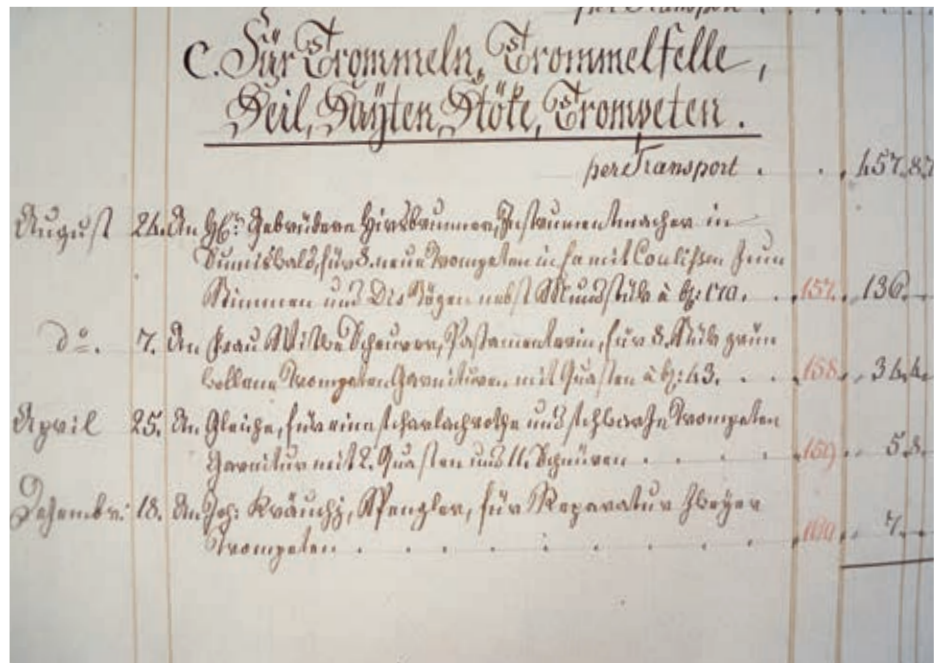 per Transport . . .
C. Für Trommeln, Trommelfelle,
Seil, Sayten, Stöke, Trompeten.
per Transport . . . 457. 8.
August 24. An Hrn Gebrüdern Hirsbrunner, Instrumentmacher in
Sumiswald, für 8. neue Trompeten in fa mit Coulissen zum
Stimmen und Dis Bögen nebst Mundstük à bz: 170. . 157. 136.
do. 7. An Frau Wittwe Scheurer, Pasamenterin, für 8. Stük grün
wollene Trompeten Garnituren mit Quasten à bz: 43. . . 158. 34. 4.
April 25. An Gleiche, für eine scharlachrothe und schwarze Trompeten
Garnitur mit 2. Quasten und 11. Schnüren . . . . 159. 5. 8.
Dezember: 18. An Joh: Kräuchj, Spengler, für Reparatur zweyer
Trompeten . . . . . . . . 160. 7.